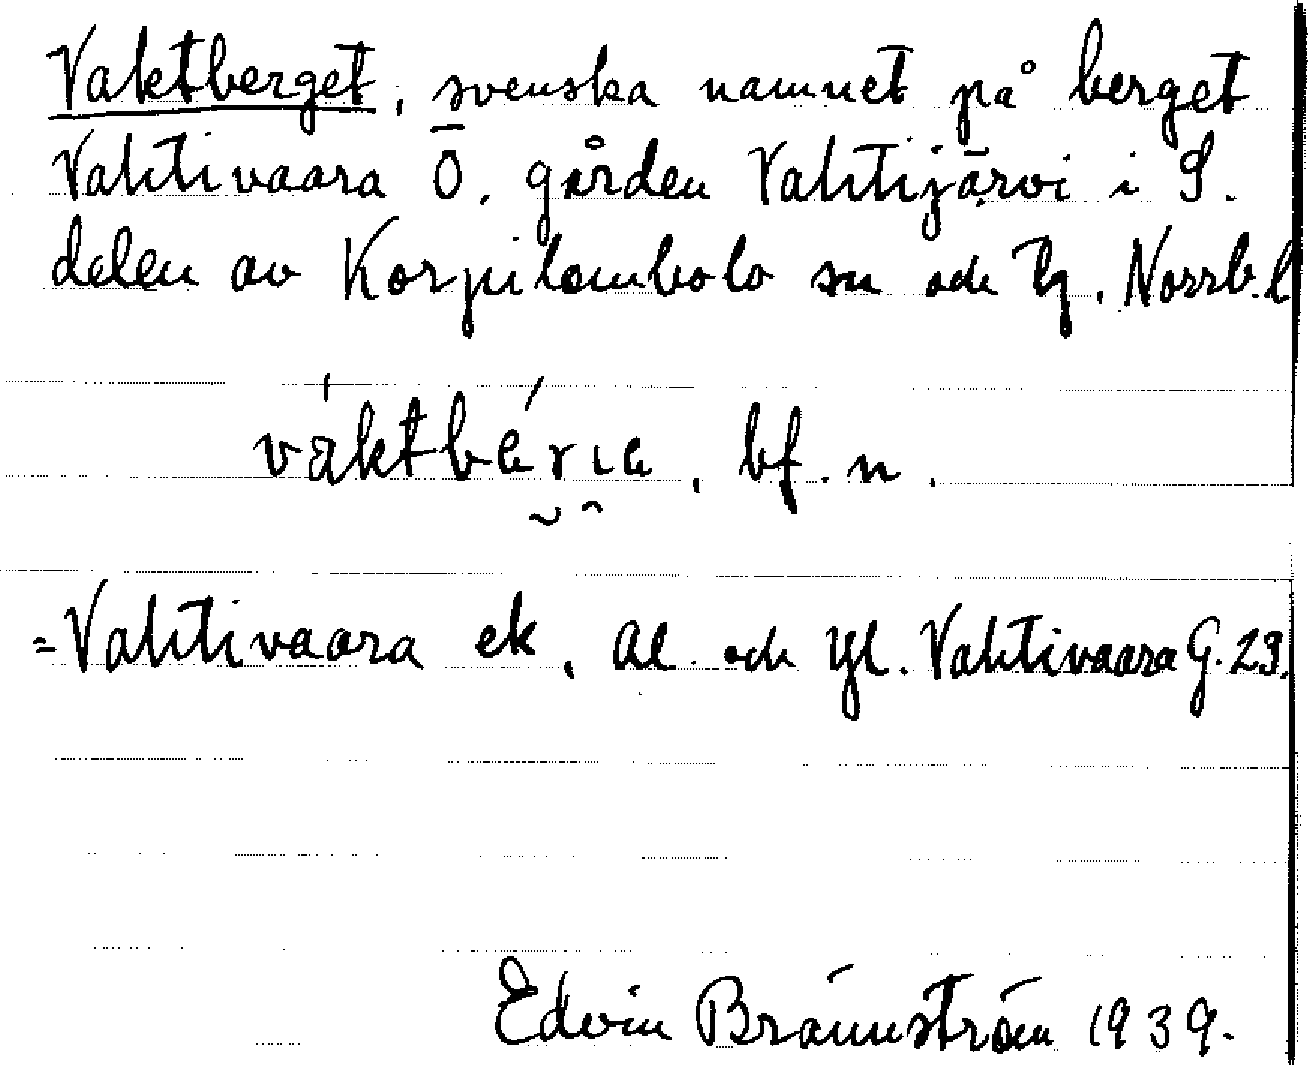 Vaktberget, svenska namnet på berget
Vahtivaara Ö. gården Vahtijärvi i S.
delen av Korpilombolo sn och tg. Norrb. l
bf. n.
=Vahtivaara ek, al. och yl. Vahtivaara G. 23.
Edvin Brännström 1939.